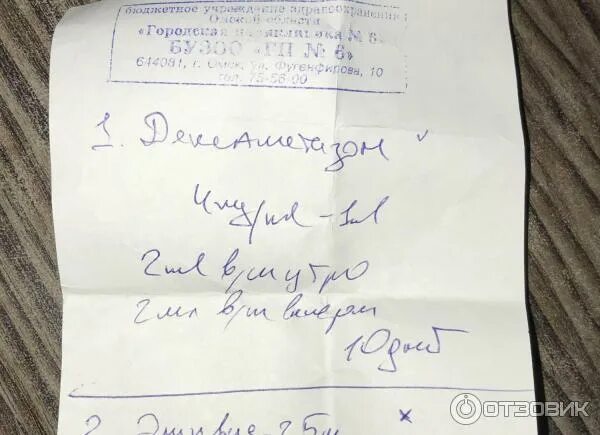 бюджетное учреждение здравоохранения
Омской области
«Городская поликлиника № 6»
БУЗОО «ГП № 6»
644081, г. Омск, ул. Фугенфирова, 10
тел. 75-56-00
1. Дексаметазон
4мг/мл - 1мл
2мл в/м утро
2мл в/м вечером
10 дней
2.
ОТЗОВИК